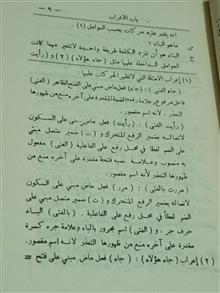 باب الأعراب
— ٩ —
انه يقدر عليه حركات بحسب العوامل (١) .
س
ما هو البناء ؟
ج
البناء هو أن تلزم الكلمة طريقة واحدة لاتتغير مهما كانت
العوامل الداخلة عليها مثل ( جاء هؤلاء ) (٢) و( رأيت
(١) إعراب الامثلة التي لاتظهر الحركات عليها :
( جاء الفتى ) : ( جاء ) فعل ماض مبني على الفتح الظاهر ( الفتى )
فاعل مرفوع وعلامة رفعه الضمة المقدرة على آخره منع من ظهورها
التعذر . لانه اسم مقصور .
( رأيت الفتى ) : ( رأيت ) فعل ماض مبني على السكون
لاتصاله بضمير الرفع المتحرك و ( ت ) ضمير متصل مبني
على الضم لفظاً في محل رفع على الفاعلية . ( الفتى ) مفعول
به منصوب وعلامة نصبه فتحة مقدرة على آخره منع من
ظهورها التعذر لأنه اسم مقصور .
( مررت بالفتى ) : ( مرر ) فعل ماض مبني على السكون
لاتصاله بضمير الرفع المتحرك و ( ت ) ضمير متصل مبني على
الضم لفظاً في محل رفع على الفاعلية . ( بالفتى ) الباء
حرف جر ، و ( الفتى ) اسم مجرور بالباء وعلامة جره كسرة
مقدرة على آخره منع من ظهورها التعذر لأنه اسم مقصور .
(٢) إعراب ( جاء هؤلاء ) : ( جاء ) فعل ماض مبني على فتح =